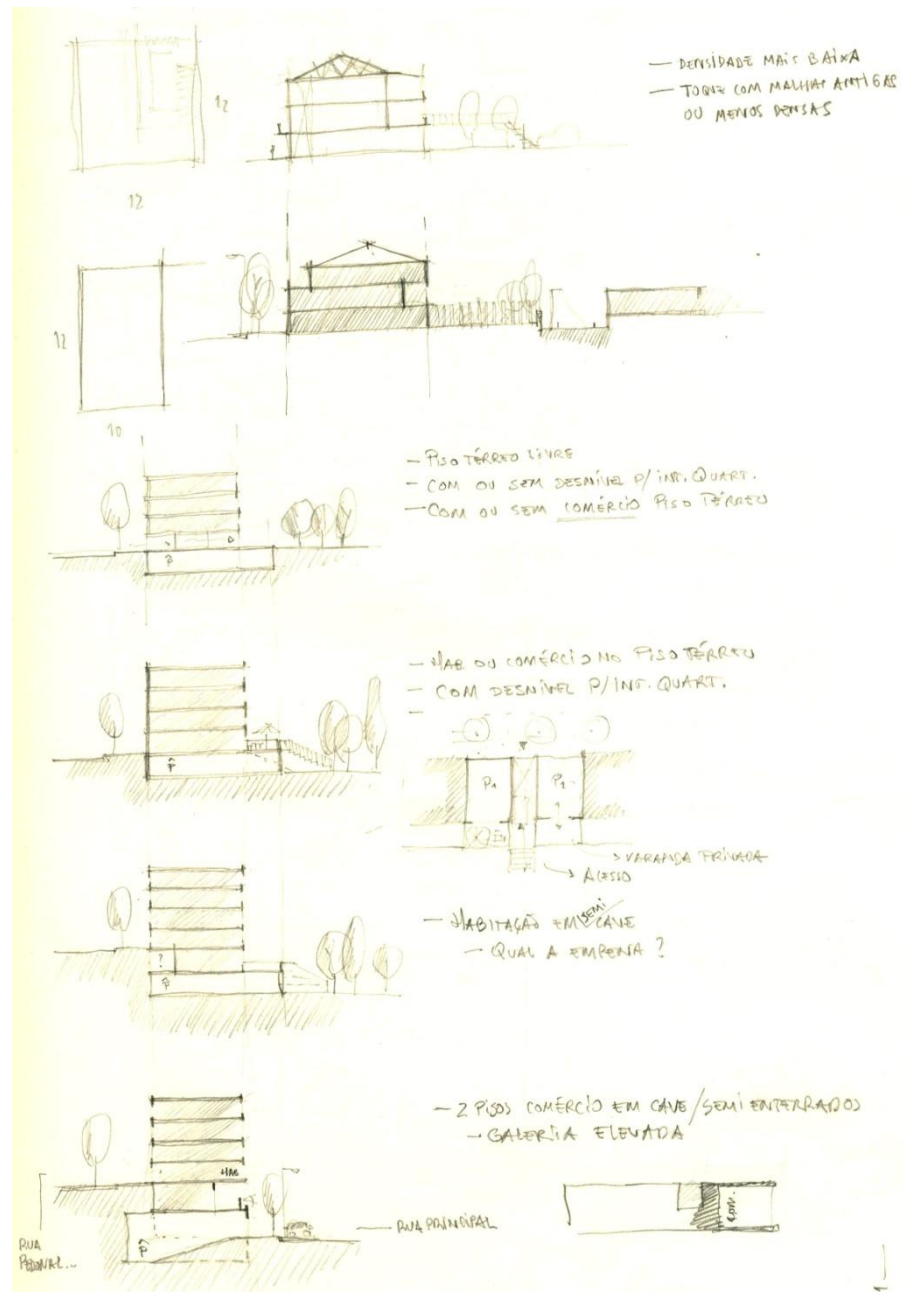 — DENSIDADE MAIS BAIXA
— TOQUE COM MALHAS ANTIGAS
OU MENOS DENSAS
12
12
12
10
— PISO TÉRREO LIVRE
— COM OU SEM DESNÍVEL P/ INT. QUART.
— COM OU SEM COMÉRCIO PISO TÉRREO
P
— HAB OU COMÉRCIO NO PISO TÉRREO
— COM DESNÍVEL P/ INT. QUART.
—
P
P1
P2
VARANDA PRIVADA
ACESSO
— HABITAÇÃO EM SEMI CAVE
— QUAL A EMPENA ?
?
P
— 2 PISOS COMÉRCIO EM CAVE/SEMI ENTERRADOS
→ GALERIA ELEVADA
HAB
P
RUA PRINCIPAL
RUA
PEDONAL...
COM.